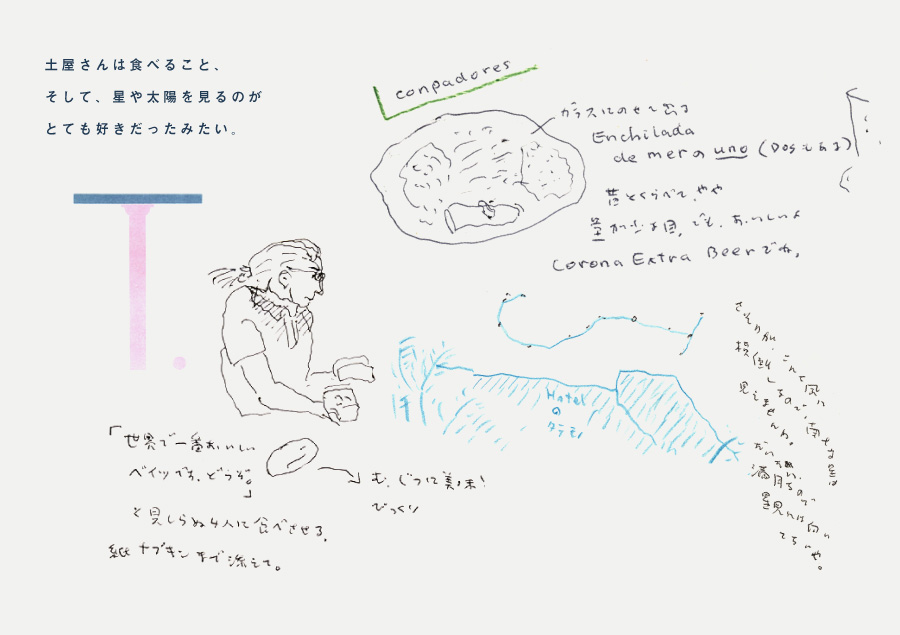 土屋さんは食べること、
そして、星や太陽を見るのが
とても好きだったみたい。
T.
conpadores
ガラスにのせて出る
Enchilada
de merの uno (Dosもある)
昔とくらべて、やや
量が少な目。でも、おいしいよ
Corona Extra Beerでね。
さそりが、こんな風に
横倒しなので、南十字星は
見えませんね。
だいたい、
満月なので
星見には向い
てないや。
Hotel
の
「世界で一番おいしい
ベイツです。どうぞ。」
む、じつに美味!
びっくり
と見しらぬ4人に食べさせる。
紙ナプキンまで添えて。